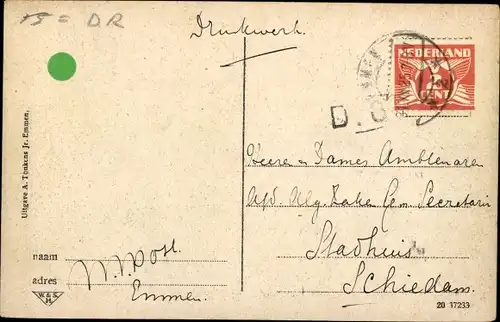 15 = DR
Drukwerk
NEDERLAND
CENT
D.
Uitgave A. Tonkens Jr. Emmen.
Heeren & Dames Ambtenaren
Afd. Alg. Zake Gem Secretarie
Stadhuis
Schiedam.
naam
adres
Emmen.
W. & S.
H
20 37233